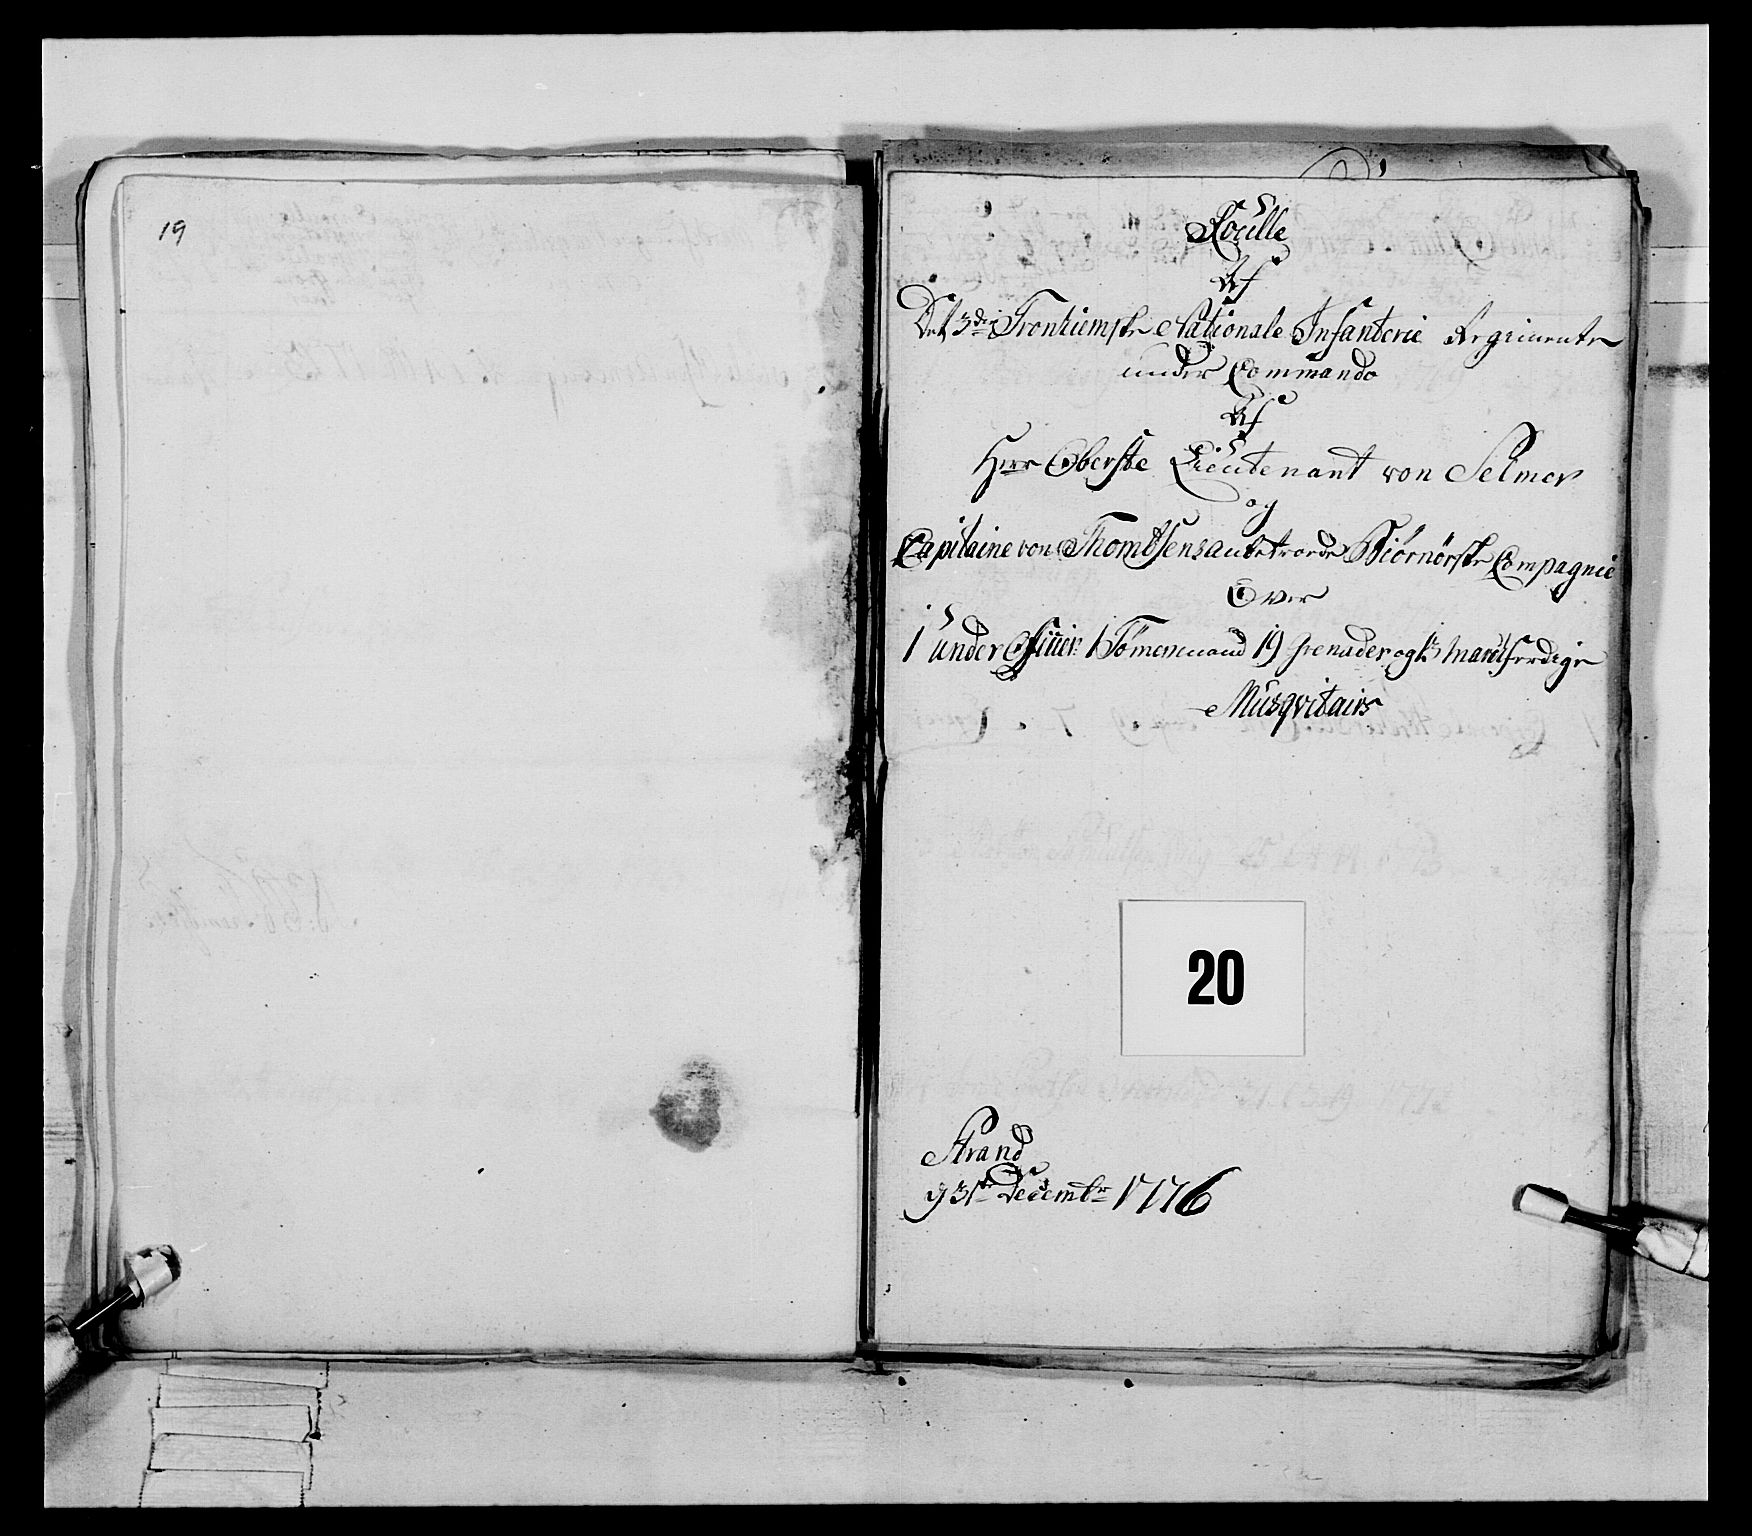 19
Roulle
Af
Det 3die Tronhiemske Nationale Infanterie Regimente
under Commando
Af
Herr Oberste Lieutenant von Selmer
og
Capitaine von Thombsens anbetroede Biörnörske Compagnie
Over
1 under Officier 1 Tömermand 19 grenader og marchferdige
Musqvitairs
20
Strand
d 31te Decembr 1776